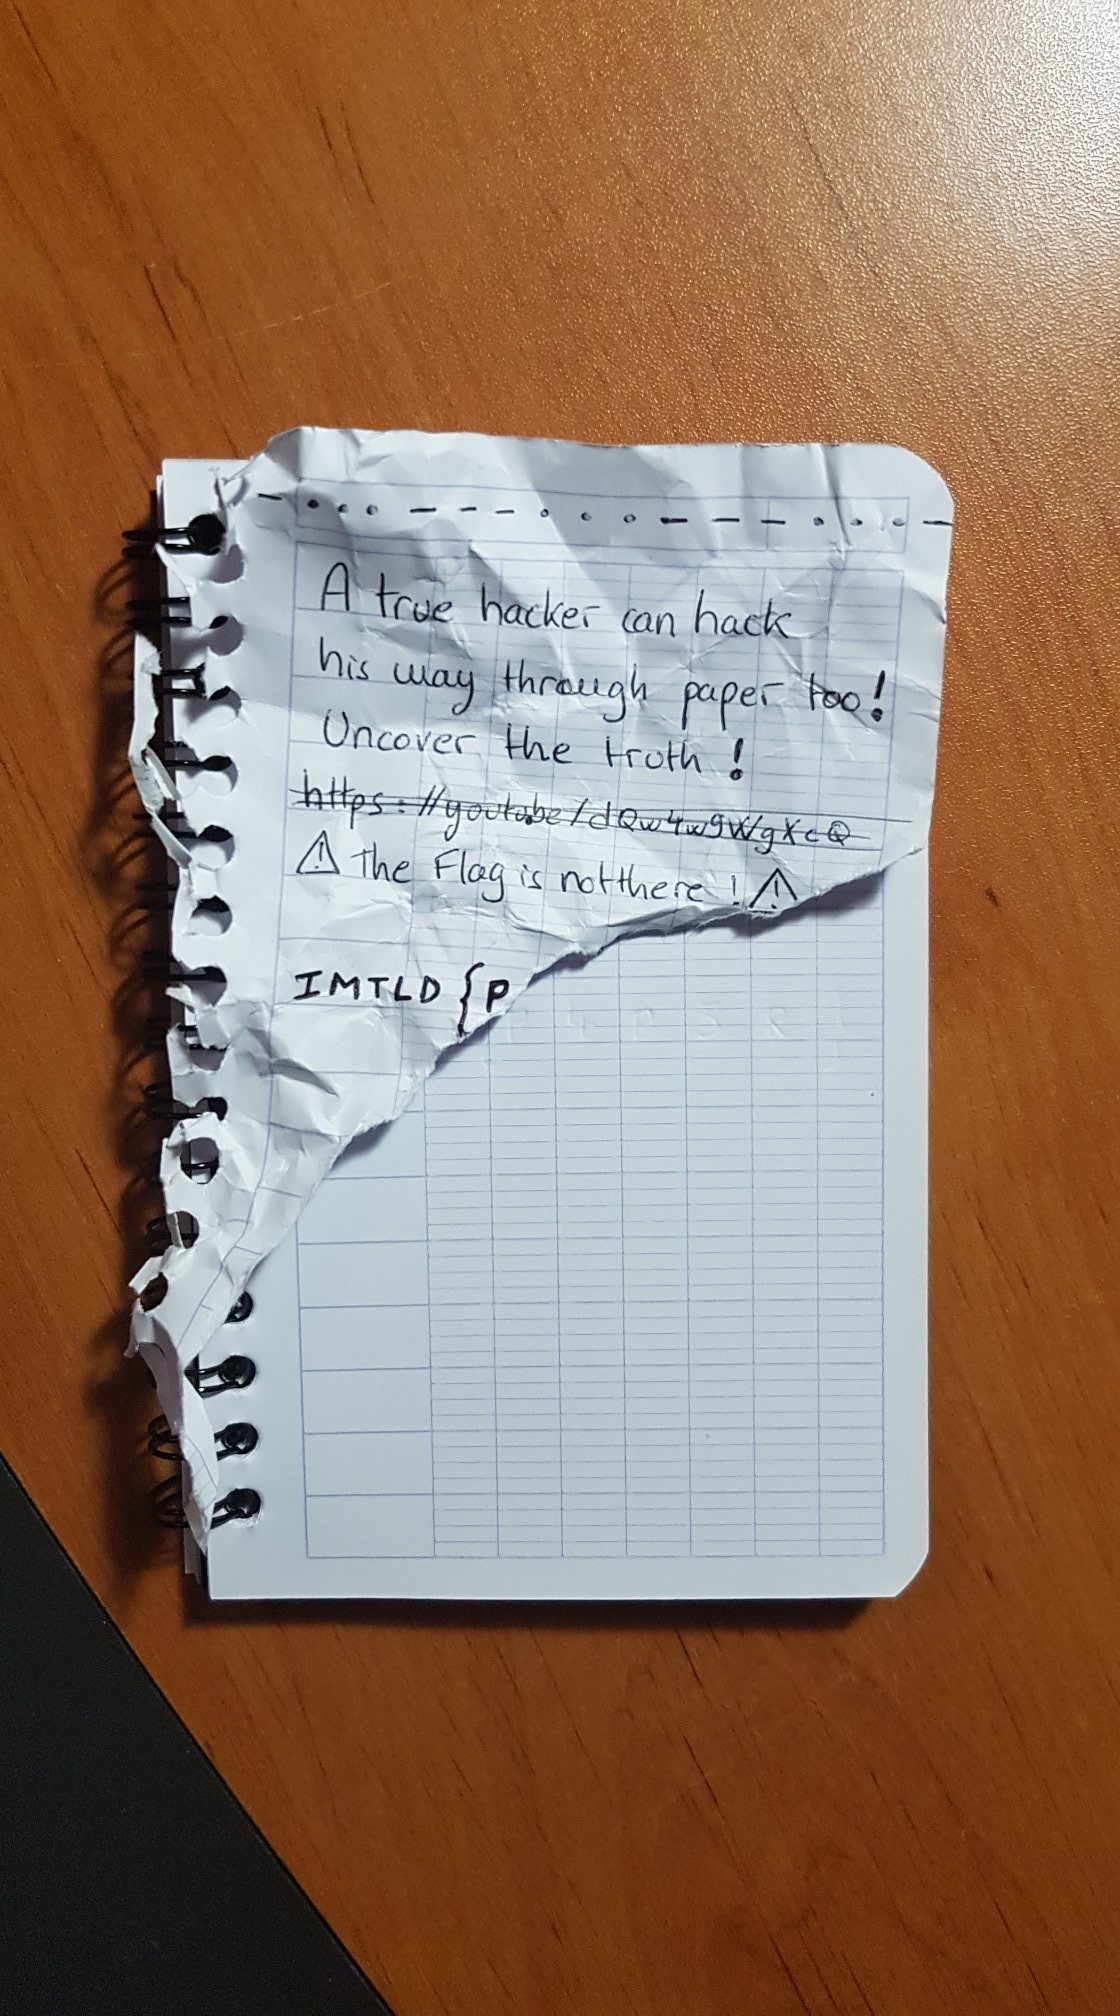 — • • • — — — • • • — — — • • • —
A true hacker can hack
his way through paper too!
Uncover the truth !
https://youtube/dQw4w9WgXcQ
⚠ The Flag is not there ! ⚠
IMTLD {P